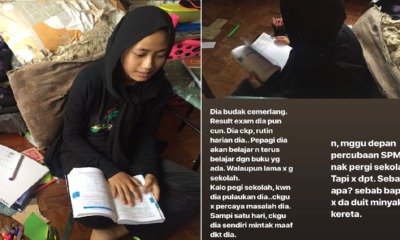 Dia budak cemerlang.
Result exam dia pun
cun. Dia ckp, rutin
harian dia.. Pepagi dia
akan belajar n terus
belajar dgn buku yg
ada. Walaupun lama x g
sekolah.
Kalo pegi sekolah, kwn
dia pulaukan dia..ckgu
x percaya masalah dia.
Sampi satu hari, ckgu
dia sendiri mintak maaf
dkt dia.
n, mggu depan
percubaan SPM
nak pergi sekola
Tapi x dpt. Seba
apa? sebab bap
x da duit minyak
kereta.